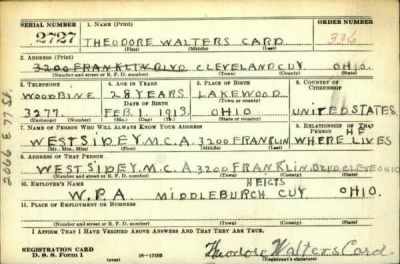 SERIAL NUMBER
1. NAME (Print)
ORDER NUMBER
2727
THEODORE WALTERS CARD
336
(First) (Middle) (Last)
2. ADDRESS (Print)
3200 FRANKLIN BLVD. CLEVELAND CUY OHIO.
(Number and street or R. F. D. number) (Town) (County) (State)
3. TELEPHONE
4. AGE IN YEARS
5. PLACE OF BIRTH
6. COUNTRY OF CITIZENSHIP
WOODBINE
28 YEARS
LAKEWOOD
DATE OF BIRTH
(Town or county)
3277.
FEB. 1 1913.
OHIO.
UNITED STATES.
(Exchange) (Number)
(Mo.) (Day) (Yr.)
(State or country)
7. NAME OF PERSON WHO WILL ALWAYS KNOW YOUR ADDRESS
8. RELATIONSHIP OF THAT PERSON
HE
WEST SIDE Y.M.C.A. 3200 FRANKLIN WHERE LIVES
(Mr., Mrs., Miss) (First) (Middle) (Last)
9. ADDRESS OF THAT PERSON
WEST SIDE Y.M.C.A. 3200 FRANKLIN BLVD CLEVE OHIO
(Number and street or R. F. D. number) (Town) (County) (State)
10. EMPLOYER'S NAME
HEIGTS
W.P.A. MIDDLEBURGH CUY OHIO.
11. PLACE OF EMPLOYMENT OR BUSINESS
(Number and street or R. F. D. number) (Town) (County) (State)
I AFFIRM THAT I HAVE VERIFIED ABOVE ANSWERS AND THAT THEY ARE TRUE.
REGISTRATION CARD
D. S. S. Form 1
16—17105
Theodore Walters Card
(Registrant's signature)
2066 E 77 ST.